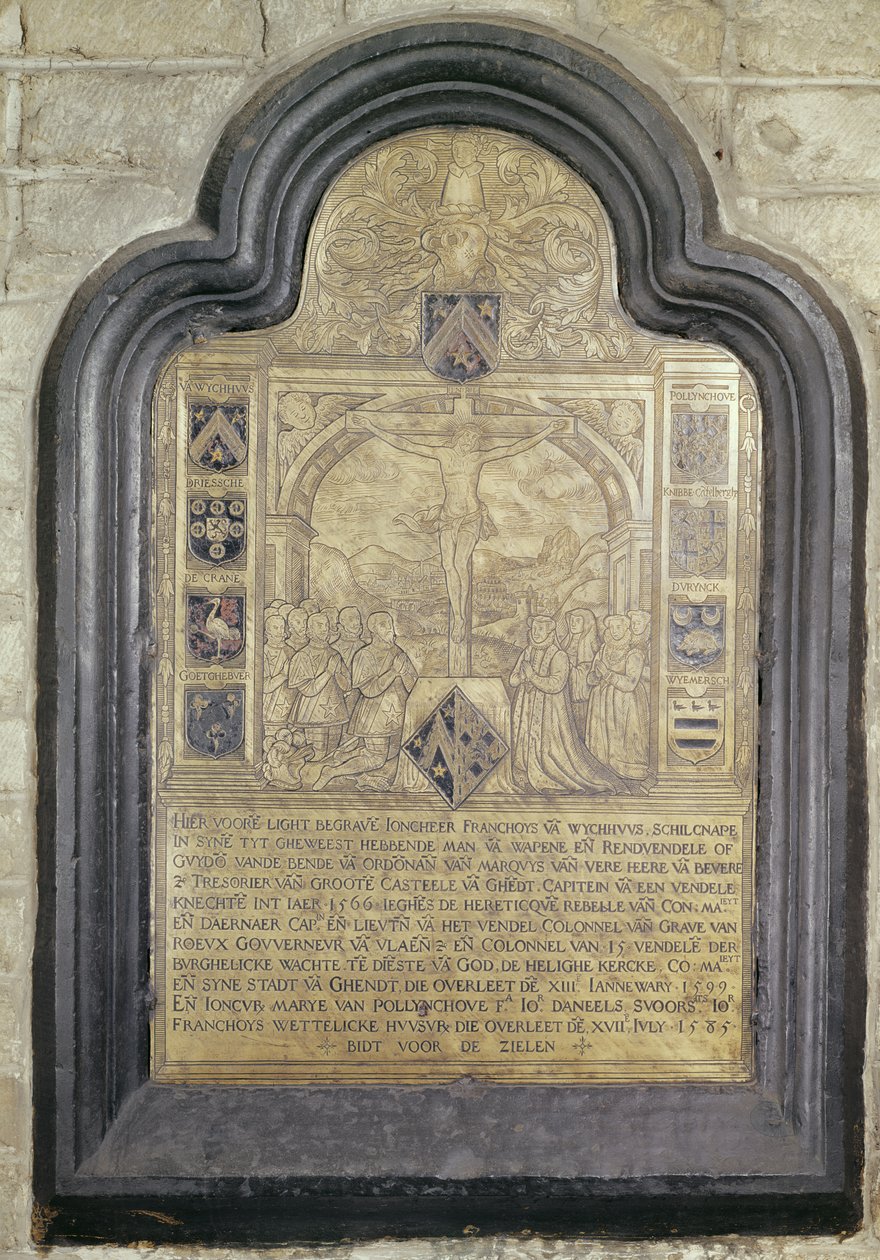 VĀ WYCHHVVS
DRIESSCHE
DE CRANE
GOETGHEBVER
POLLYNCHOVE
KNIBBE
DVRYNCK
WYEMERSCH
HIER VOORĒ LIGHT BEGRAVĒ IONCHEER FRANCHOYS VĀ WYCHVVS, SCHILCNAPE
IN SYNĒ TYT GHEWEEST HEBBENDE MAN VĀ WAPENE EÑ RENDVENDELE OF
GVYDŌ VANDE BENDE VĀ ORDŌNAN VAÑ MARQVYS VAÑ VERE HEERE VĀ BEVERE
& TRESORIER VAÑ GROOTĒ CASTEELE VĀ GHĒDT. CAPITEIN VĀ EEN VENDELE
KNECHTĒ INT IAER · 1566 · IEGHĒS DE HERETICQVĒ REBELLE VAÑ CON: MAIEYT
EÑ DAERNAER CAPIN EÑ LIEVTÑ VĀ HET VENDEL COLONNEL VAÑ GRAVE VAN
ROEVX GOVVERNEVR VĀ VLAEÑ & EÑ COLONNEL VAN 15 VENDELĒ DER
BVRGHELICKE WACHTE. TĒ DIĒSTE VĀ GOD, DE HELIGHE KERCKE, CO: MAIEYT
EÑ SYNE STADT VĀ GHENDT, DIE OVERLEET DĒ XIIIE IANNEWARY · 1599
EÑ IONCVR MARYE VAN POLLYNCHOVE FA IOR DANEELS, SVOORSATS IOR
FRANCHOYS WETTELICKE HVVSVR, DIE OVERLEET DĒ XVIIE IVLY · 1585 ·
BIDT VOOR DE ZIELEN